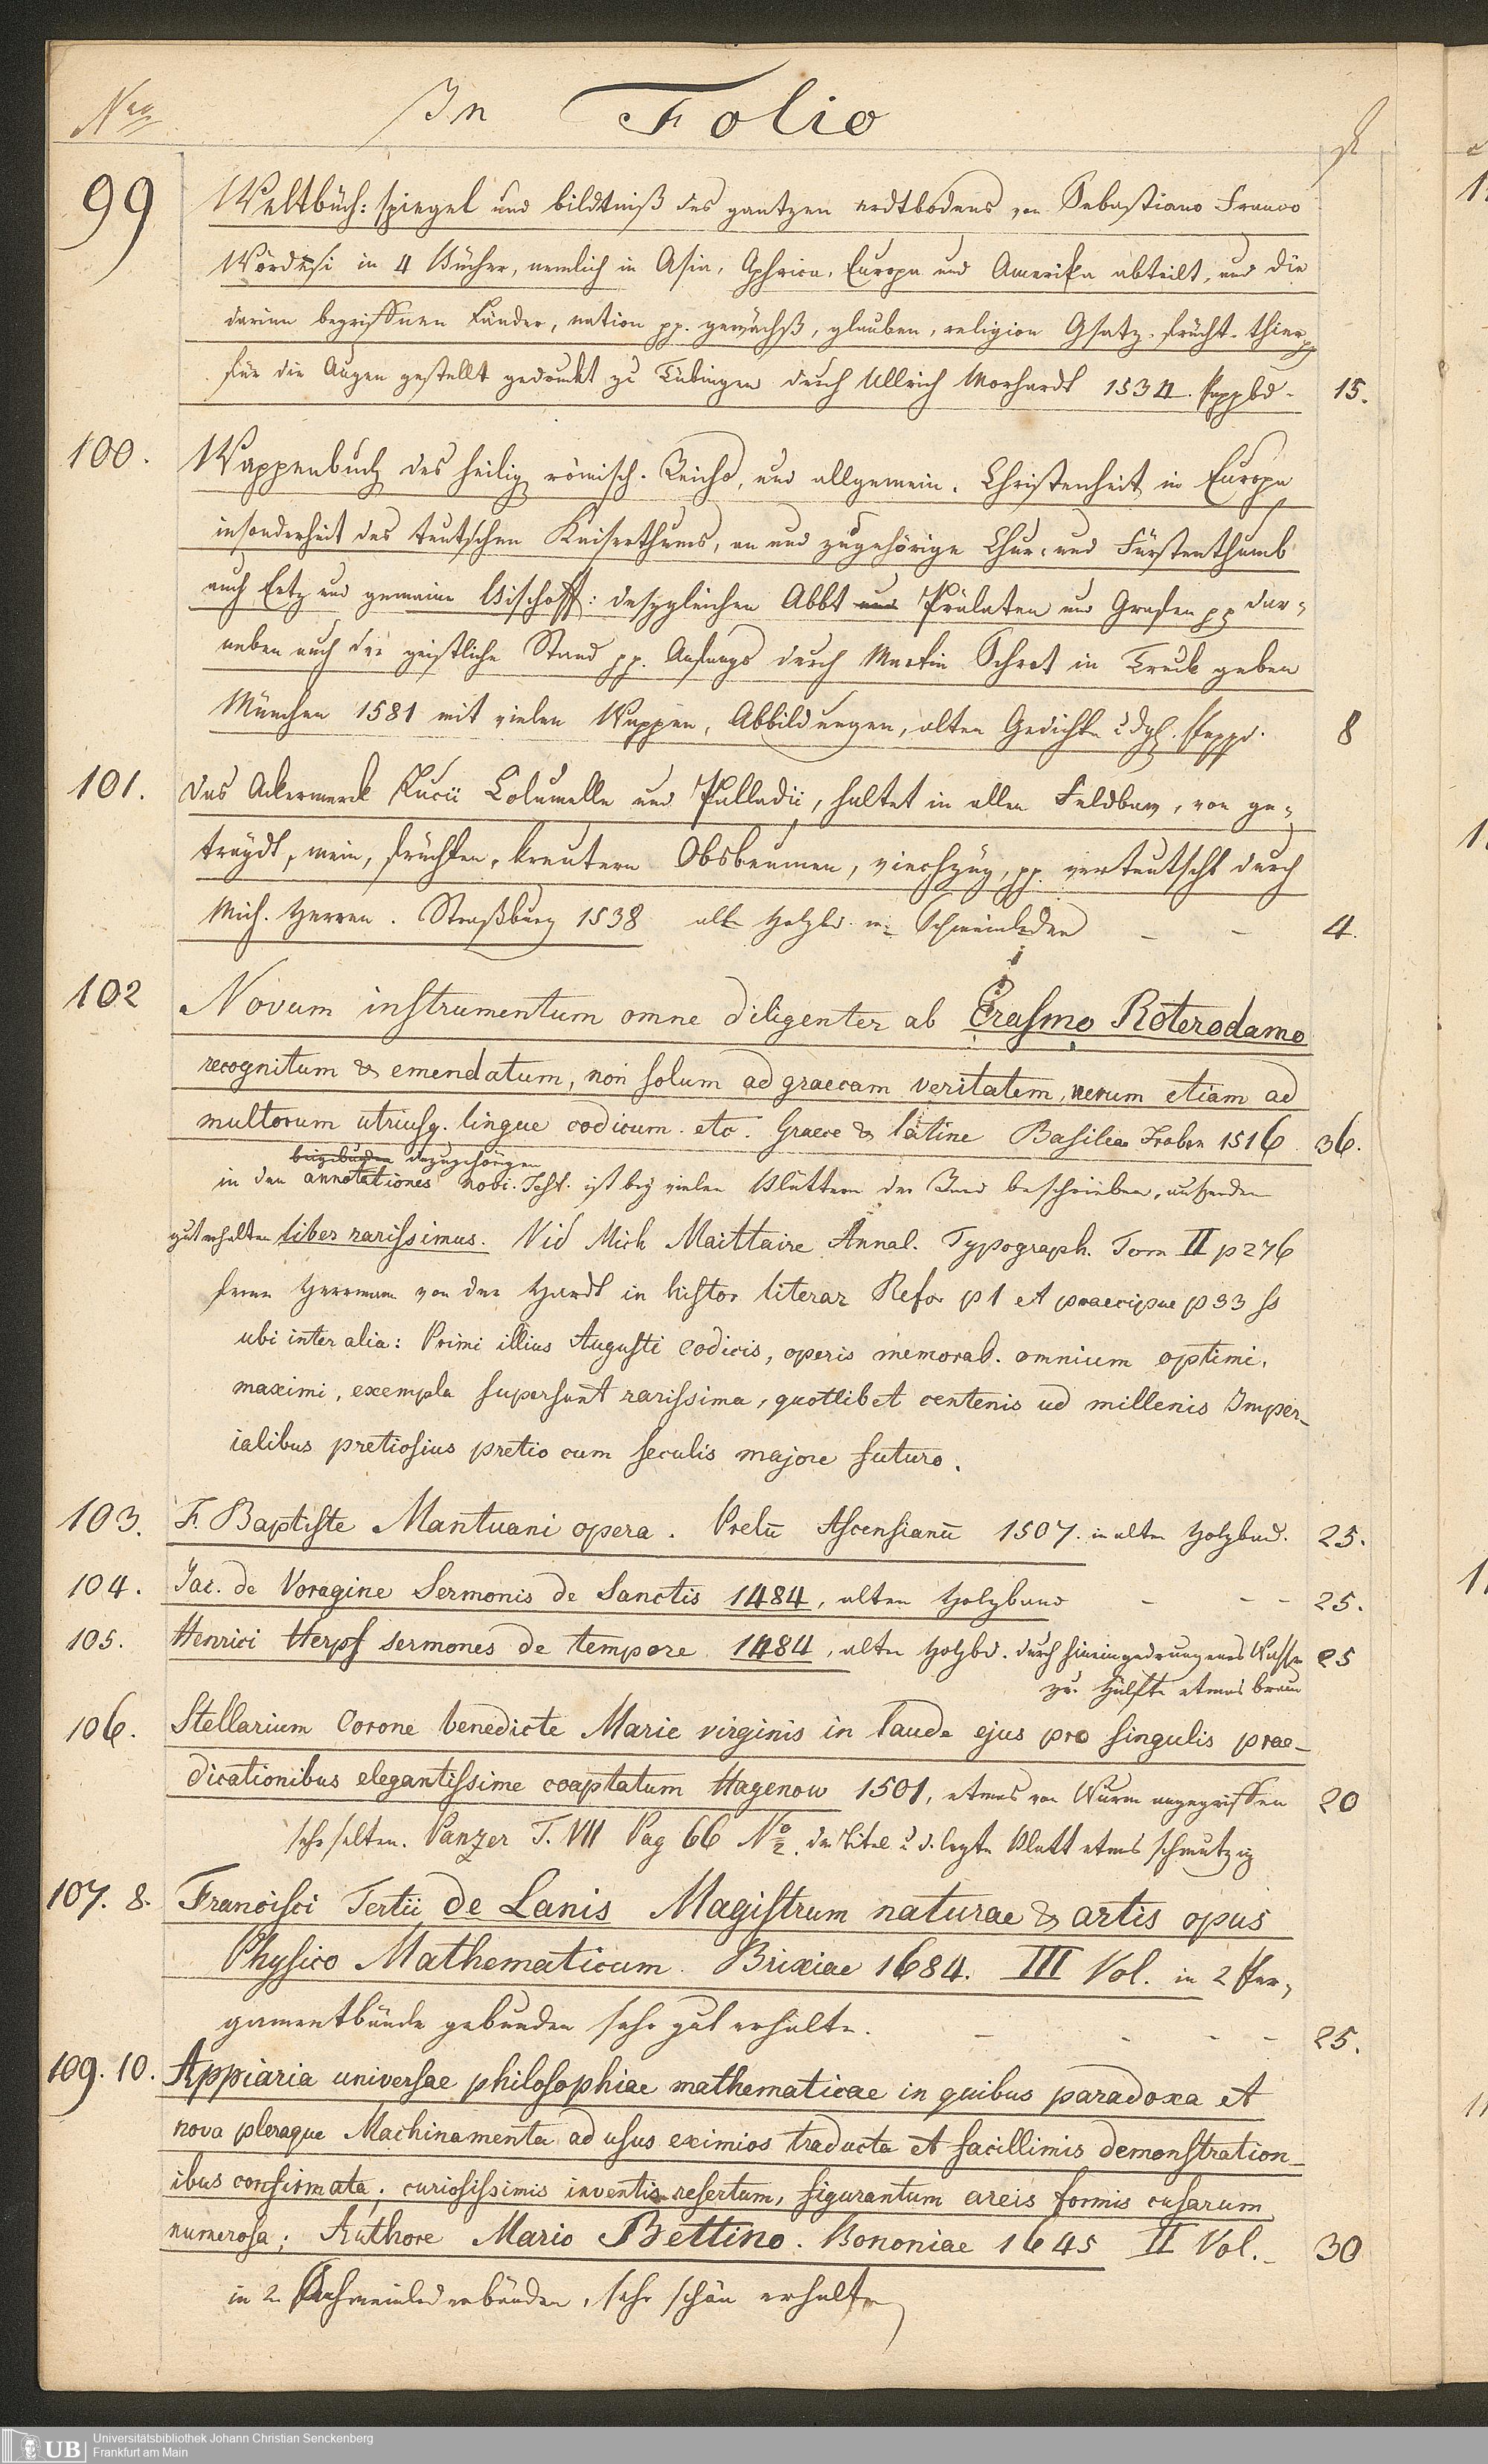 Nro
In Folio
fl
99 Weltbuch: spiegel und bildtniß des gantzen erdtbodens von Sebastiano Franco
Wördensi in 4 Bücher, nemlich in Asia, Aphrica, Europa und Amerika abteilt, und die
darinn begriffnen Länder, nation pp. gewächß, glauben, religion Gsatz. frücht. thier pp
für die Augen gestellt gedruckt zu Tübingen durch Ullrich Morhardt 1534. Pappbd. 15.
100. Wappenbuch des heilig römisch. Reichs, und allgemein. Christenheit in Europa
insonderheit des teutschen Kaiserthums, an und zugehörige Chur- und Fürstenthumb
auch Ertz und gemaine Bischoff: desgleichen Abbt und Prälaten und Grafen pp dar-
neben auch der geistliche Stand pp. Anfangs durch Martin Schrot in Truck geben
München 1581 mit vielen Wappen, Abbildungen, alten Gedichten u dgl. Pappd. 8
101. Das Ackerwerck Lucii Columelle und Palladii, haltet in allen Feldbaw, von ge-
träydt, wein, früchten, kreutern Obsbeumen, viechzug, pp. verteutscht durch
Mich. Herren. Straßburg 1538 alt Holzbd. m. Schweinleder - - 4.
102 Novum instrumentum omne diligenter ab Erasmo Roterodamo
recognitum & emendatum, non solum ad graecam veritatem, verum etiam ad
multorum utriusq. lingue codicum. etc. Graece & latine Basileae Froben 1516 36.
beigebunden dazugehörigen
in den annotationes novi. Test. ist bey vielen Blättern der Rand beschrieben, außerdem
gut erhalten liber rarissimus. Vid Mich Maittaire Annal. Typograph. Tom II p 276
ferner Herrmann von der Hardt in histor literar Refor p 1 et praecipue p 33 ss
ubi inter alia: Primi illius Augusti codicis, operis memorab. omnium optimi,
maximi, exempla supersunt rarissima, quotlibet centenis ud millenis Imper-
ialibus pretiosius pretio cum seculis majore futuro.
103. F. Baptiste Mantuani opera. Prelū Ascensianū 1507. in alten Holzband. 25.
104. Jac. de Voragine Sermonis de Sanctis 1484, alten Holzband - - - 25.
105. Henrici Herpf sermones de tempore 1484, alter Holzbd. durch hineingedrungenes Wasser 25
zur Hälfte etwas braun
106. Stellarium Corone benedicte Marie virginis in laude ejus pro singulis prae-
dicationibus elegantissime coaptatum Hagenow 1501, etwas von Wurm angegriffen 20
sehr selten. Panzer T. VII Pag 66 No 2. der Titel u d. lezte Blatt etwas schmutzig
107. 8. Francisci Tertii de Lanis Magistrum naturae & artis opus
Physico Mathematicum. Brixiae 1684. III Vol. in 2 Per-
gamentbände gebunden sehr gut erhalten. - - - - 25.
109. 10. Appiaria universae philosophiae mathematicae in quibus paradoxa et
nova pleraque Machinamenta ad usus eximios traducta et facillimis demonstration-
ibus confirmata; curiosissimis inventis refertum, figurantum aereis formis cusarum
numerosa; Authore Mario Bettino. Bononiae 1645 II Vol. - 30
in 2 Schweinlederbänden, sehr schön erhalten
UB Universitätsbibliothek Johann Christian Senckenberg
Frankfurt am Main